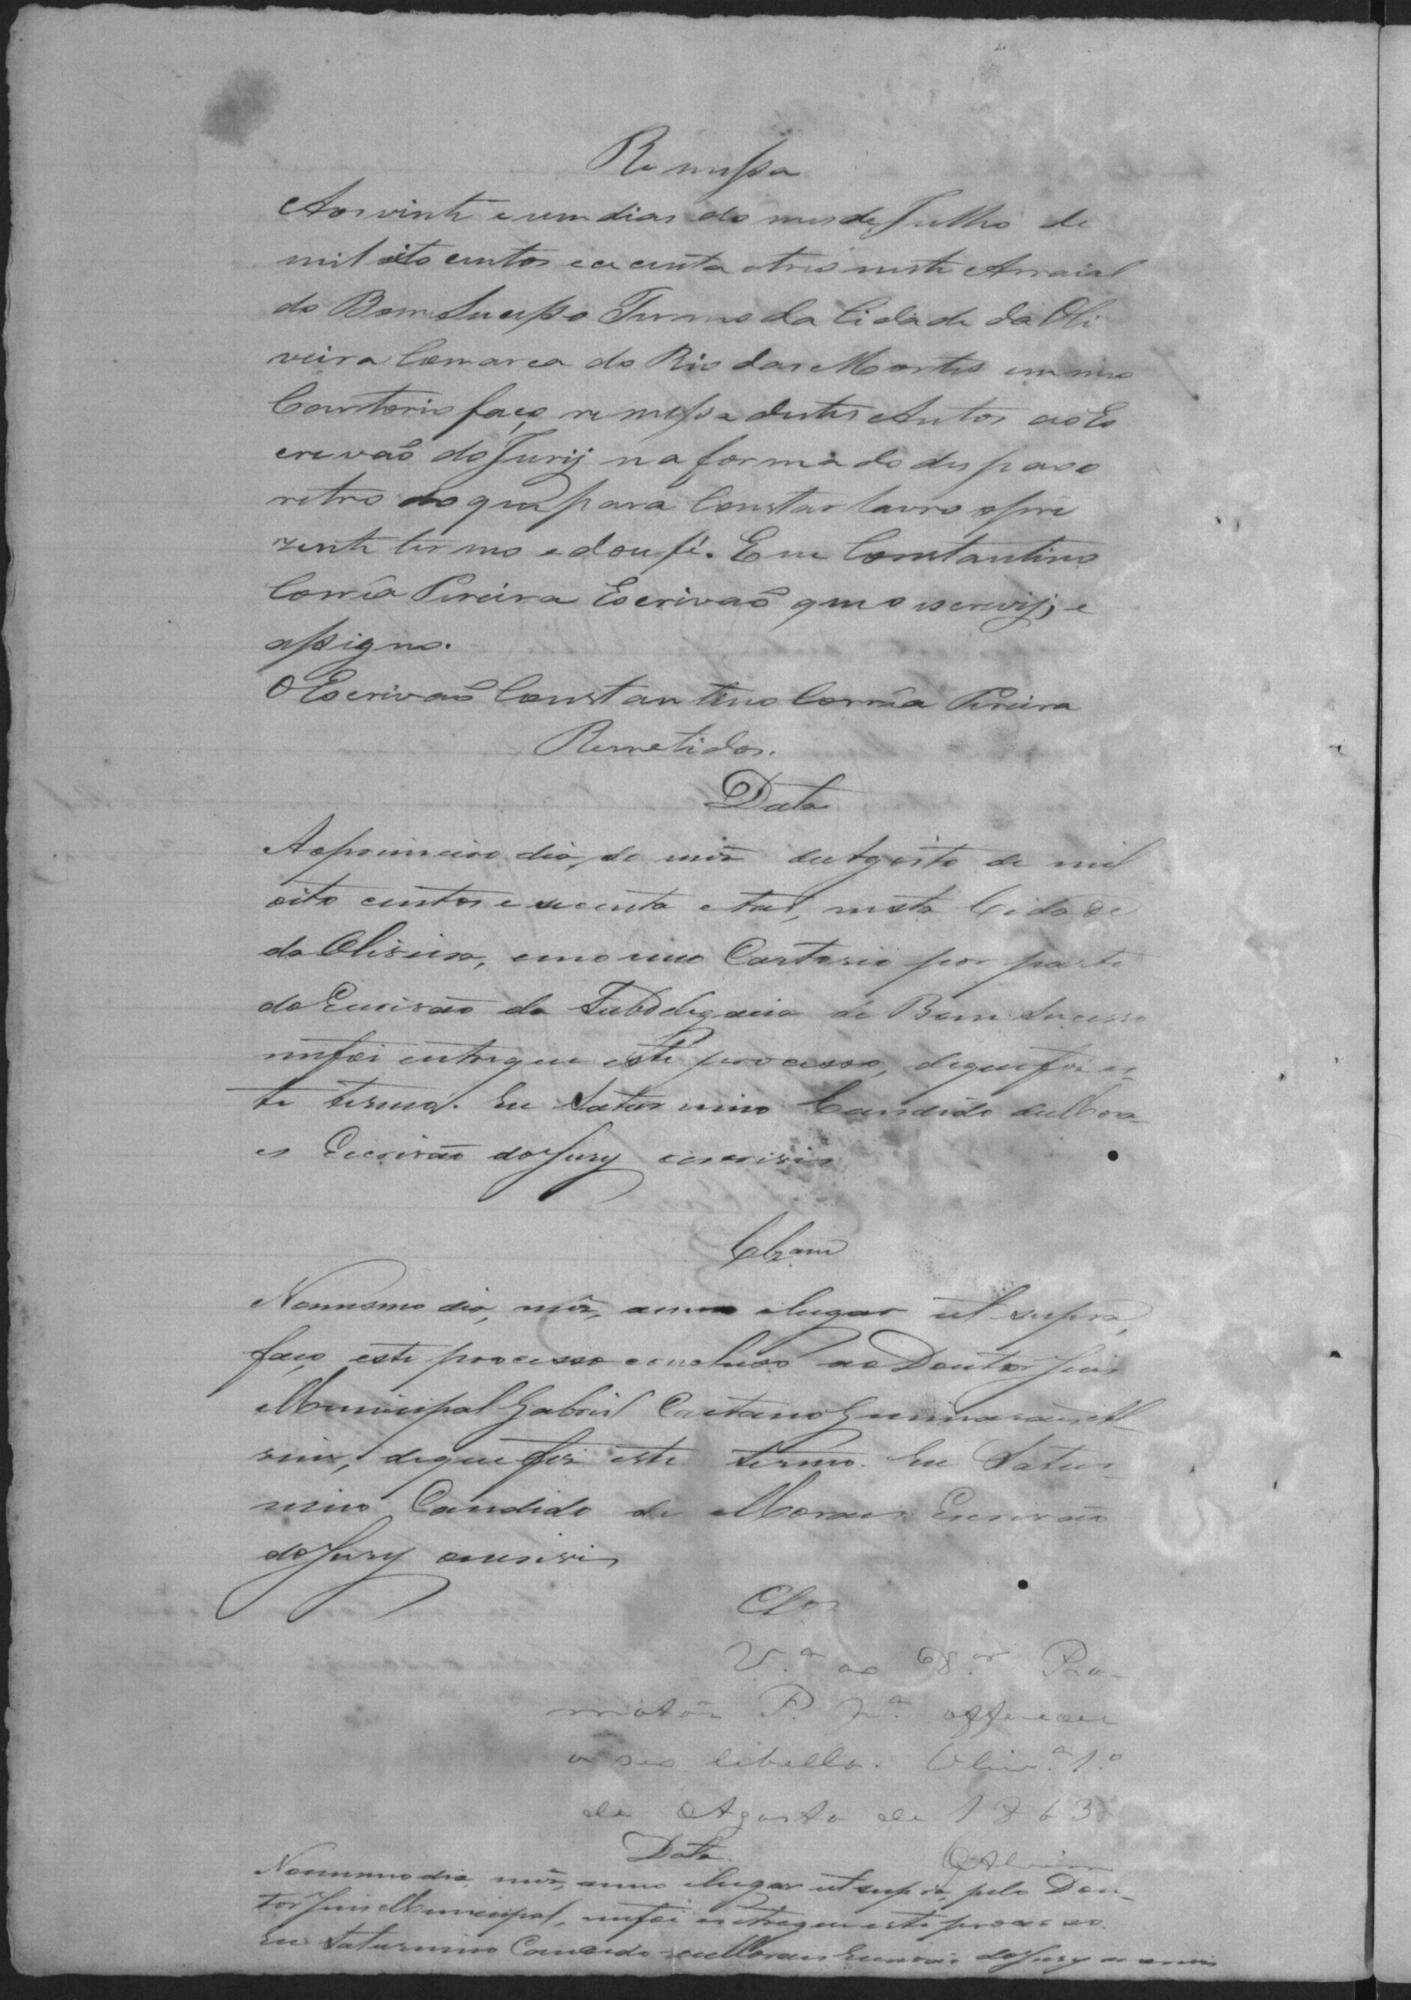 Remessa
Aos vinte e um dias do mes de Julho de
mil oito centos e cecenta e tres neste Arraial
do Bom Sucesso Termo da Cidade da Oli
veira Comarca do Rio das Mortes em meu
Cartorio faço remessa destes Autos ao Es
crivaõ do Jurij na forma do despaxo
retro do que para Constar lavro o pre
zente termo e dou fé. Eu Constantino
Corrêa Pereira Escrivaõ que o escrevij, e
assigno.
O Escrivaõ Constantino Corrêa Pereira
Remetidos.
Data
Ao primeiro dia, do mêz de Agosto de mil
oito centos e secenta e tres, nesta Cidade
da Oliveira, em o meu Cartorio por parte
do Escrivão da Subdelegacia de Bom Sucesso
me foi entregue este processo, de que fiz es-
te termo. Eu Saturnino Candido de Mora-
es Escrivão do Jury o escrevi
Clzam
No mesmo dia, mêz, anno e lugar ut supra,
faço este processo concluso ao Doutor Juis
Municipal Gabriel Caetano Guimarães Al-
vim, de que fiz este termo. Eu Satur-
nino Candido de Moraes Escrivão
do Jury o escrevi
Clos
V.ª ao Sr. Pro-
motor P. p.ª offerecer
o seo libello. Oliv.ª 1.º
de Agosto de 1863
Alvim
Data
No mesmo dia, mêz, anno e lugar ut supra, pelo Dou-
tor Juis Municipal, me foi entregue este processo.
Eu Saturnino Candido de Moraes Escrivão do Jury o escrevi